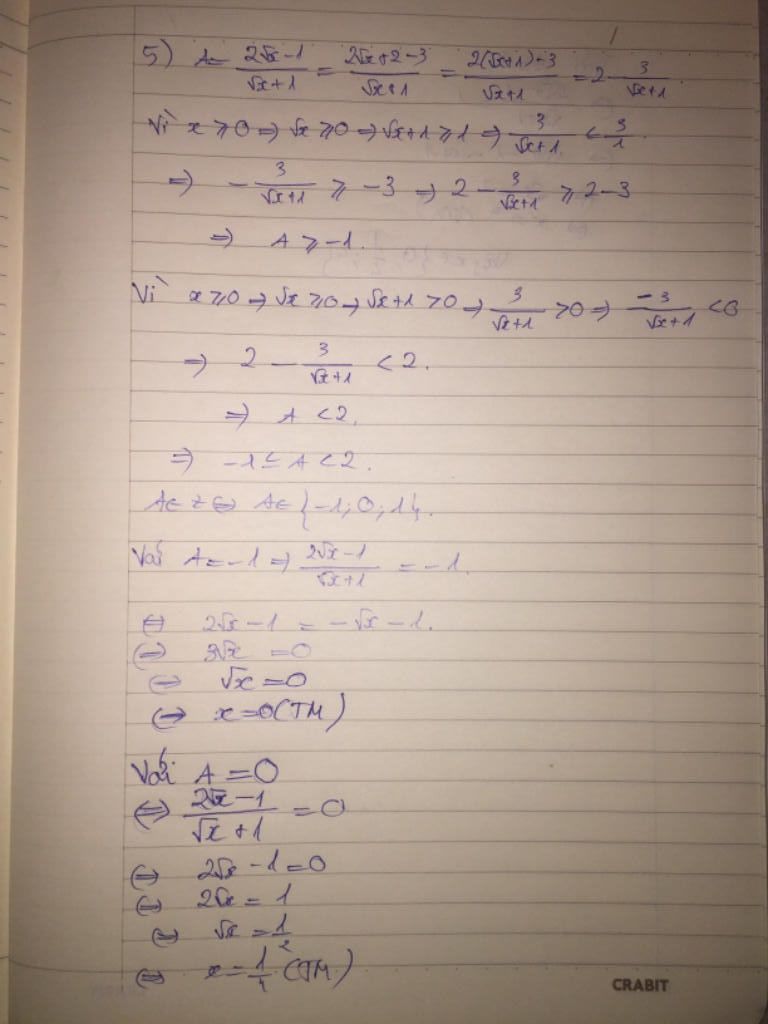 5) A = (2√x - 1)/(√x + 1) = (2√x + 2 - 3)/(√x + 1) = (2(√x + 1) - 3)/(√x + 1) = 2 - 3/(√x + 1)
Vì x ⩾ 0 => √x ⩾ 0 => √x + 1 ⩾ 1 => 3/(√x + 1) < 3/1
=> - 3/(√x + 1) ⩾ -3 => 2 - 3/(√x + 1) ⩾ 2 - 3
=> A ⩾ -1.
Vì x ⩾ 0 => √x ⩾ 0 => √x + 1 > 0 => 3/(√x + 1) > 0 => -3/(√x + 1) < 0
=> 2 - 3/(√x + 1) < 2.
=> A < 2.
=> -1 ≤ A < 2.
A ∈ Z <=> A ∈ {-1; 0; 1}.
Với A = -1 => (2√x - 1)/(√x + 1) = -1.
<=> 2√x - 1 = -√x - 1.
<=> 3√x = 0
<=> √x = 0
<=> x = 0 (TM)
Với A = 0
<=> (2√x - 1)/(√x + 1) = 0
<=> 2√x - 1 = 0
<=> 2√x = 1
<=> √x = 1/2
<=> x = 1/4 (TM)
CRABIT